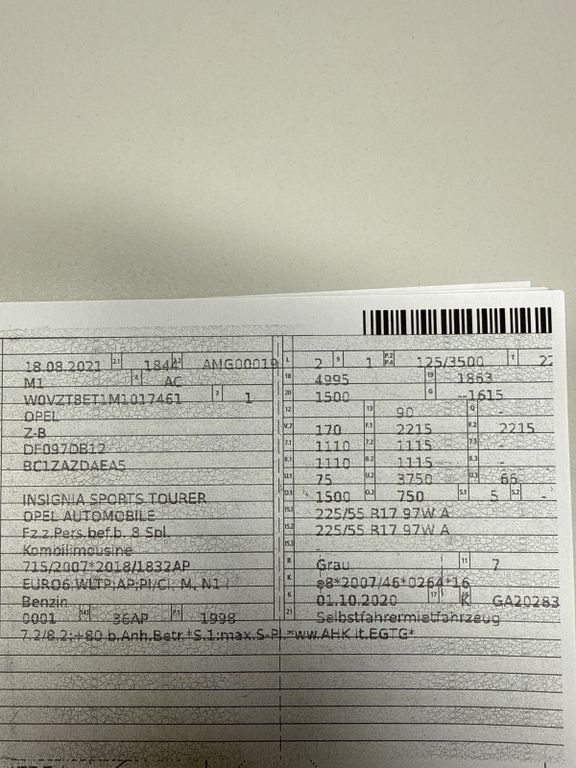 18.08.2021 2.1 1844 2.2 AMG00019 L 2 9 1 P.2 P.4 125/3500 T 22
M1 4 AC 18 4995 19 1863
W0VZT8ET1M1017461 3 1 20 1500 G --1615
OPEL 12 13 90 Q -
Z-B V.7 170 F.1 2215 F.2 2215
DF097DB12 7.1 1110 7.2 1115 7.3 -
BC1ZAZDAEA5 8.1 1110 8.2 1115 8.3 -
U.1 75 U.2 3750 U.3 66
INSIGNIA SPORTS TOURER O.1 1500 O.2 750 S.1 5 S.2 -
OPEL AUTOMOBILE 15.1 225/55 R17 97W A
Fz.z.Pers.bef.b. 8 Spl. 15.2 225/55 R17 97W A
Kombilimousine 15.3 -
715/2007*2018/1832AP R Grau 11 7
EURO6;WLTP;AP;PI/CI; M, N1 I K e8*2007/46*0264*16
Benzin 6 01.10.2020 17 K 16 GA20283
0001 14.1 36AP P.1 1998 21 Selbstfahrermietfahrzeug
7.2/8.2:+80 b.Anh.Betr.*S.1:max.S-Pl.*ww.AHK lt.EGTG*